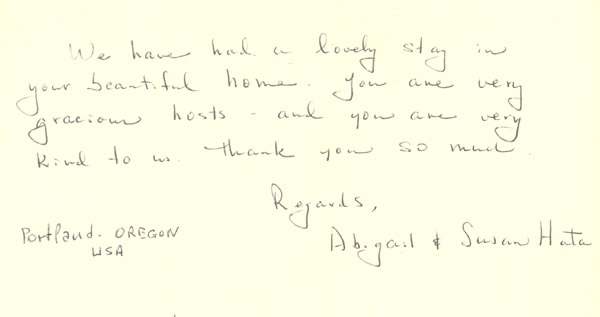 We have had a lovely stay in
your beautiful home. You are very
gracious hosts - and you are very
kind to us. Thank you so much.
Regards,
Abigail & Susan Hata
Portland. OREGON
USA